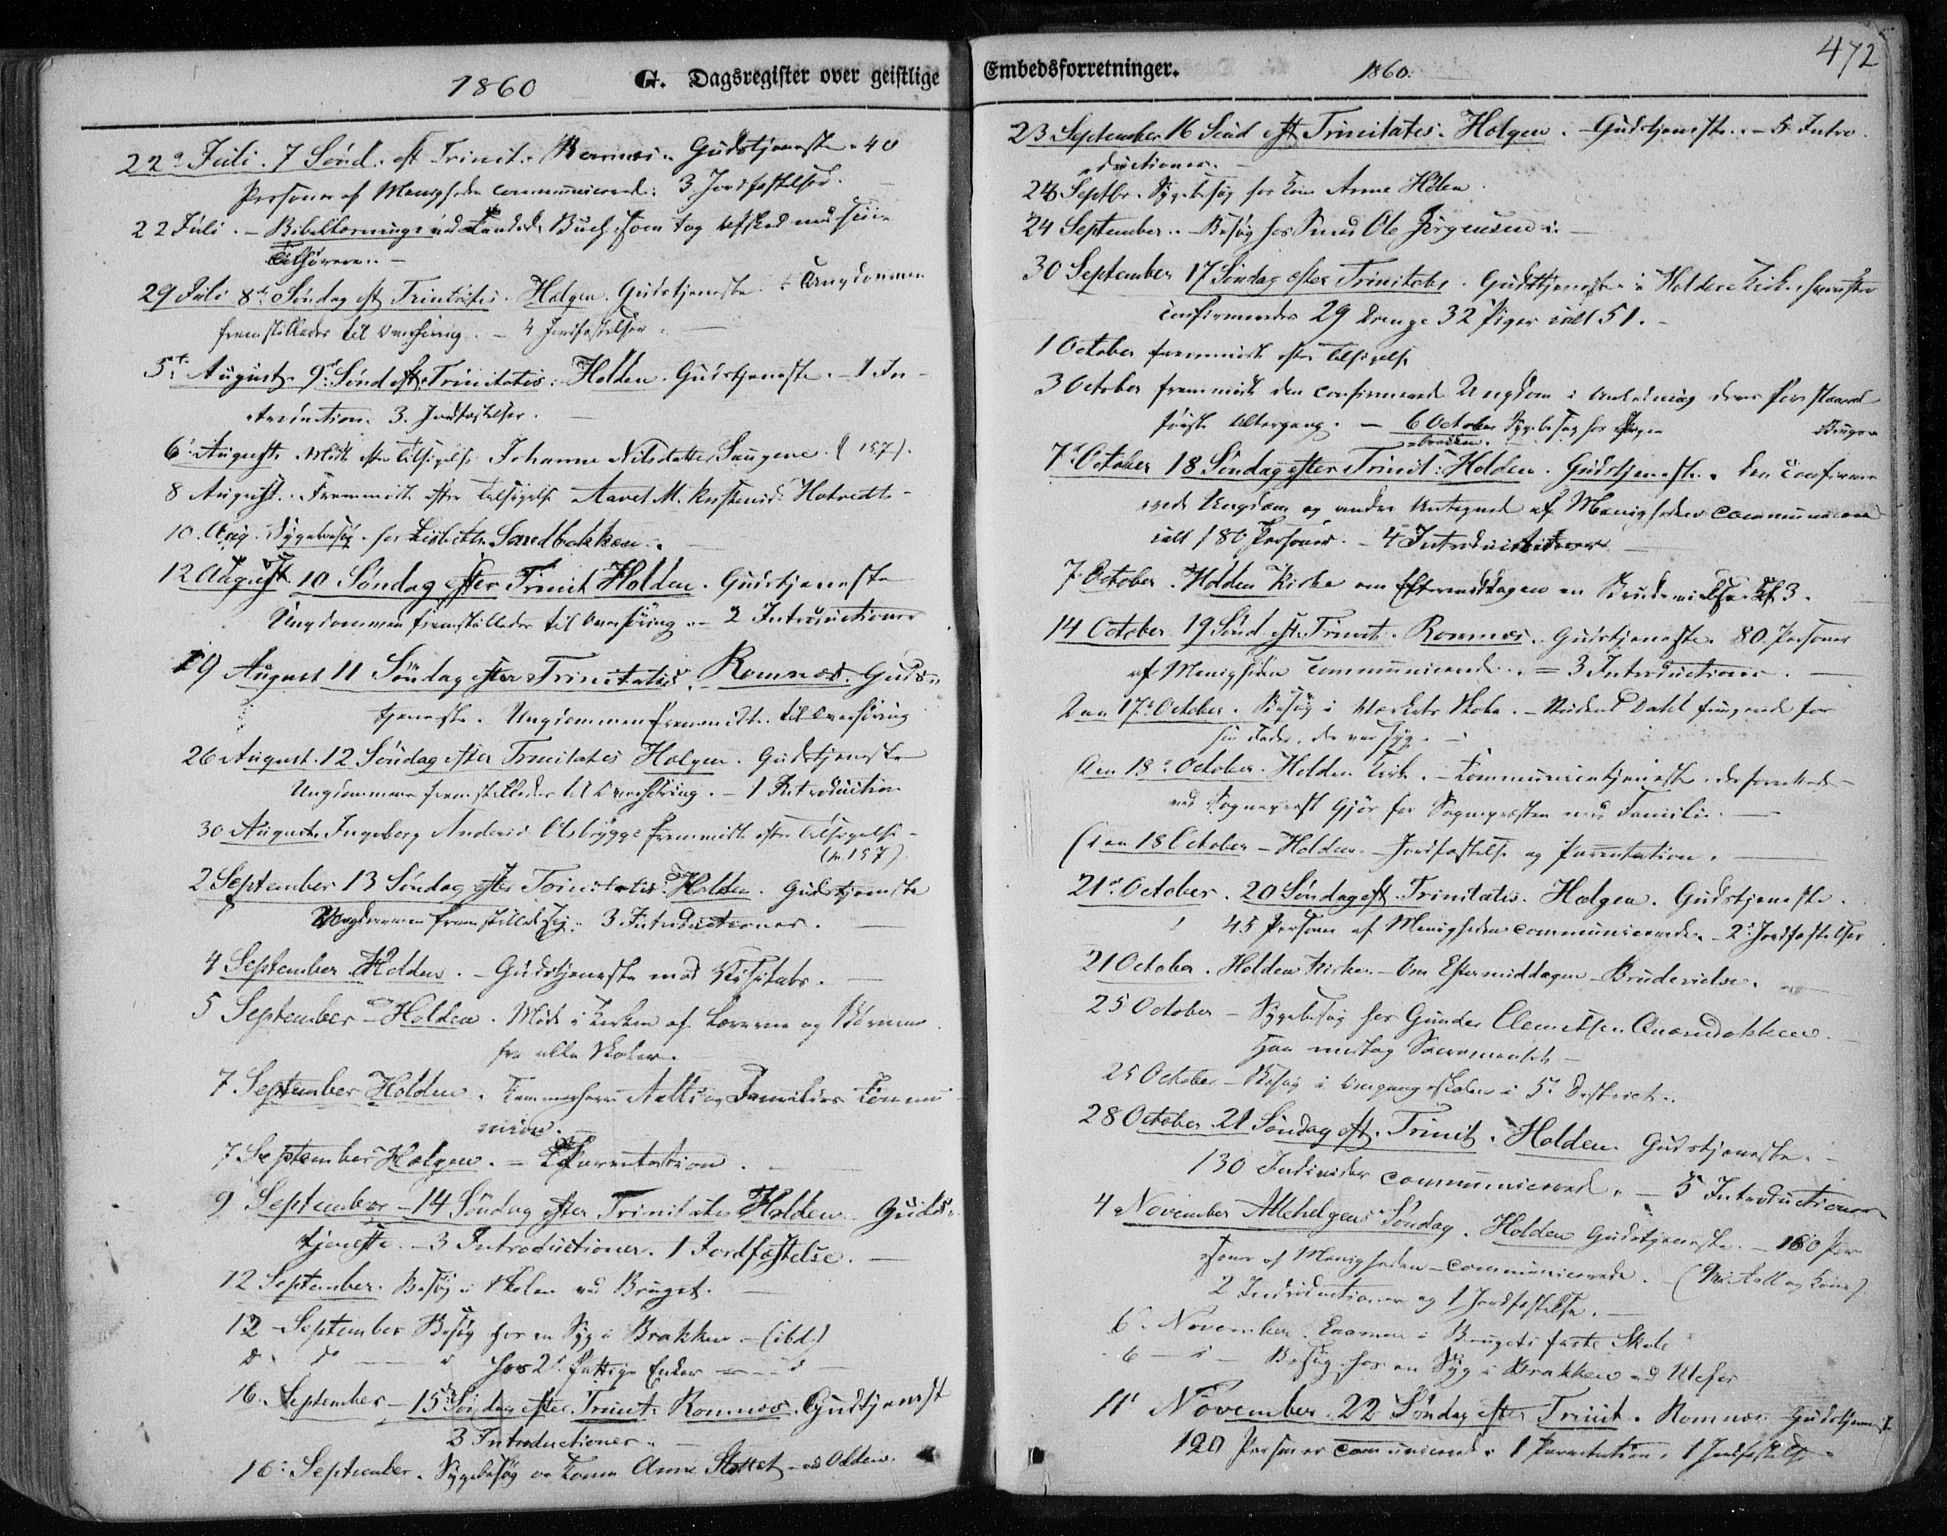 1860 G. Dagsregister over geistlige
22 Juli. 7 Sønd. eft Trinit. Romnæs. Gudstjeneste. 40
Personer af Menigheden communicerede. 3 Jordfæstelser.
22 Juli. - Bibellæsning ved Buch, som tog Afsked med sine
Tilhørere. -
29 Juli 8de Søndag eft Trinitatis. Helgen. Gudstjeneste. Ungdommen
fremstilledes til Overhøring. - 4 Jordfæstelser. -
5te August. 9de Sønd eft. Trinitatis. Holden. Gudstjeneste. - 1 In-
troduction. 3. Jordfæstelser.
6 August. Mødt efter Tilsigelse Johanne Nilsdatter Saugene. (157).
8 August. Fremmødt efter Tilsigelse M.
10. Aug. Sygebesøg hos Lisbeth Sandbakken. -
12 August 10 Søndag efter Trinit Holden. Gudstjeneste
Ungdommen fremstilledes til Overhøring. - 2 Introductioner
19 August 11 Søndag efter Trinitatis. Romnæs. Guds-
tjeneste. Ungdommen fremmødte til Overhøring
26 August. 12 Søndag efter Trinitates Helgen. Gudstjeneste
Ungdommen fremstilledes til Overhøring. - 1 Introduction
30 August. Ingeborg Andersd. fremmødt efter Tilsigelse -
(157)
2 September 13 Søndag efter Trinitatis. Holden. Gudstjeneste
Ungdommen 3 Introductioner.
4 September Holden. - Gudstjeneste med Visitats. -
5 September - Holden. Møde i Kirken af Lærerne og Børnene
fra alle Skoler.
7 September Holden. Kammerherre Aalls og Families Commu-
nion. -
7 September Helgen. = Parentation. -
9 September - 14 Søndag efter Trinitatis Holden. Guds-
tjeneste. - 3 Introductioner. 1 Jordfæstelse. -
12 September. Besøg i Skolen ved Bruget. -
12 September Besøg hos en Syg i Brakken - (ibd.)
d do - hos 2 fattige Enker -
16. September - 15de Søndag efter Trinit. Romnæs. Gudstjenest
3 Introductioner. -
16. September. Sygebesøg Anne

Embedsforretninger. 1860. 472
23 September 16 Sønd eft Trinitatis. Helgen. - Gudstjeneste. - 5 Intro-
ductioner. -
24 Septbr. Sygebesøg hos Anne
24 September. Besøg hos Ole Jørgensen
30 September 17 Søndag efter Trinitatis. Gudstjeneste i Holden Kirke,
confirmeredes 29 Drenge 32 Piger ialt 51. -
1 October fremmødt efter Tilsigelse
3 October fremmødt den confirmerede Ungdom i Anledning deres forestaaende
første Altergang. - 6 October Sygebesøg hos
7de October 18 Søndag efter Trinit. Holden. Gudstjeneste. Den confirme-
rede Ungdom og andre af Menigheden communicerede
ialt 180 Personer. - 4 Introductioner -
7 October. Holden Kirke om Eftermiddagen en Brudevielse 3.
14 October. 19 Sønd eft. Trinit. Romnæs. Gudstjeneste. 80 Personer
af Menigheden communicerede. = 3 Introductioner. -
Den 17 October. Besøg i Skole. - Student Dahl fungerede for
sin Fader, der var syg. -
Den 18 October. Holden Kirke. - Communiontjeneste, der forrettedes
ved Sognepræst for Sognepræsten med Familie. -
Den 18 October - Holden. - Jordfæstelse og Parentation. -
21de October. 20 Søndag eft. Trinitatis. Helgen. Gudstjeneste.
45 Personer af Menigheden communicerede. - 2 Jordfæstelser
21 October. Holden Kirke. - Om Eftermiddagen - Brudevielse. -
25 October - Sygebesøg hos Gunder Clemetsen -
Han modtog Sacramentet -
25 October - Besøg i Omgangsskolen i 5te District.
28 October 21 Søndag eft. Trinit. Holden. Gudstjeneste. -
130 Individer communicerede. - 5 Introductioner
4 November Allehelgens Søndag. Holden Gudstjeneste. - 160 Per-
soner af Menigheden - communicerede. - (
2 Introductioner og 1 Jordfæstelse. -
6. November. Examen i Brugets faste Skole
6 - Besøg hos en Syg i Brakken ved Ulefos
11 November. 22 Søndag efter Trinit. Romnæs Gudstjeneste
120 Personer communicerede. 1 Parentation. 1 Jordfæstelse